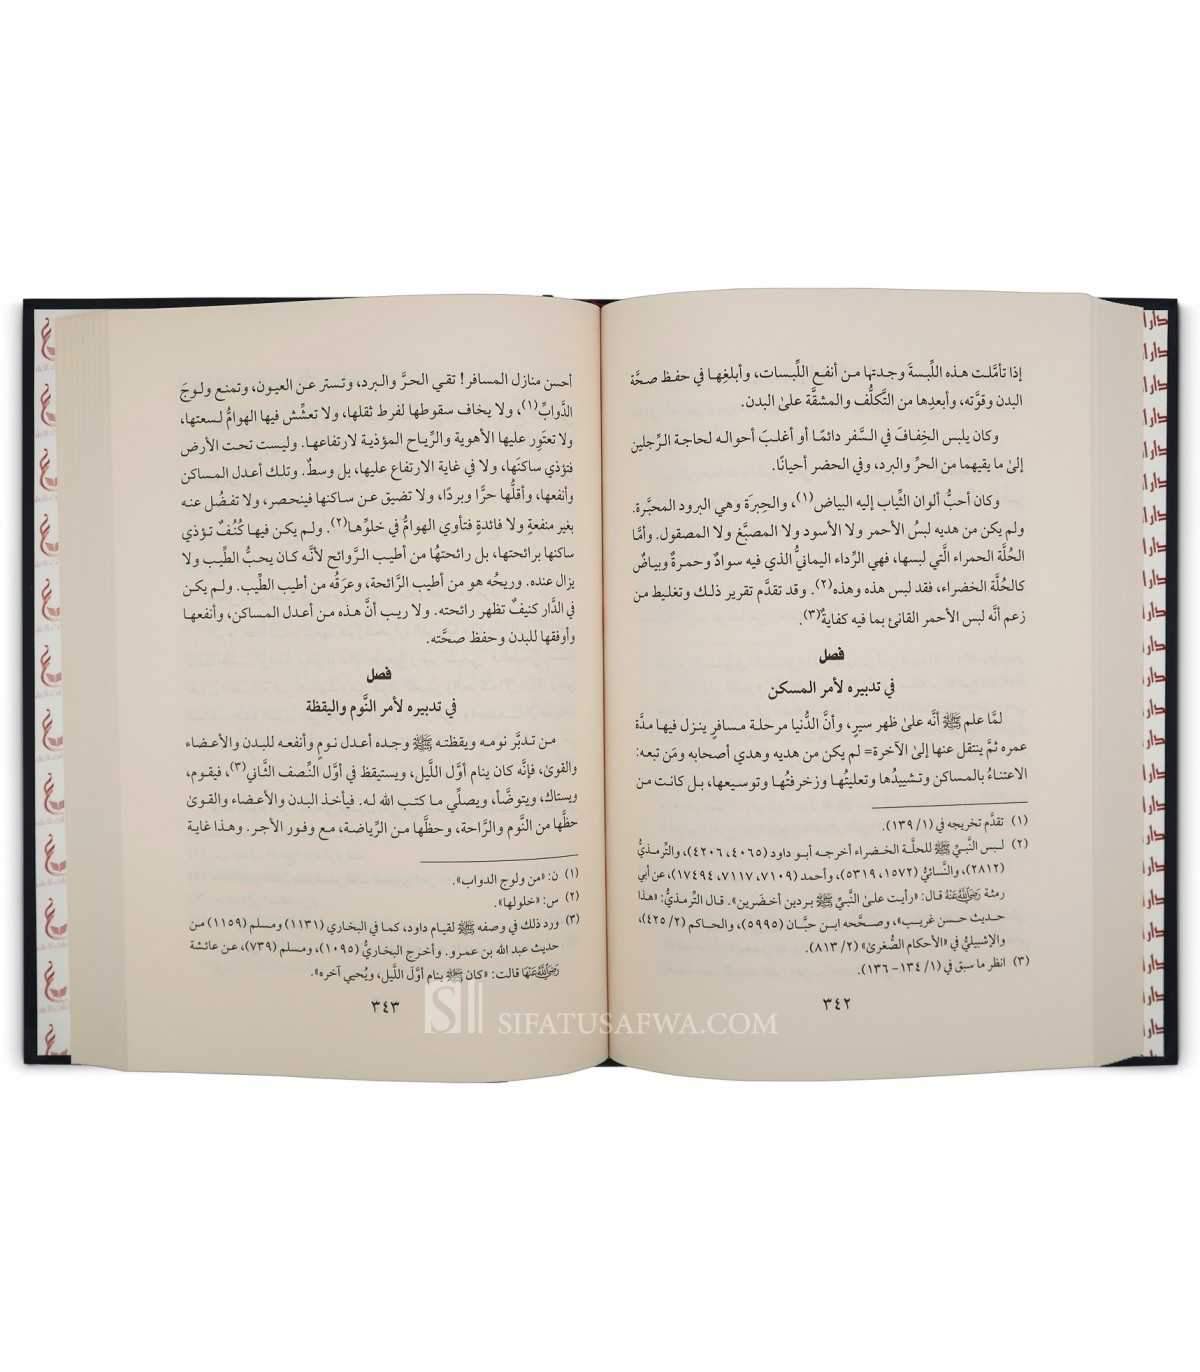 إذا تأمَّلت هذه اللِّبسةَ وجدتها من أنفع اللِّبسات، وأبلغِها في حفظ صحَّة
البدن وقوَّته، وأبعدِها من التَّكلُّف والمشقَّة علىٰ البدن.
وكان يلبس الخِفافَ في السَّفر دائمًا أو أغلبَ أحواله لحاجة الرِّجلين
إلىٰ ما يقيهما من الحرِّ والبرد، وفي الحضر أحيانًا.
وكان أحبُّ ألوان الثِّياب إليه البياض(١)، والحِبرَة وهي البرود المحبَّرة.
ولم يكن من هديه لبسُ الأحمر ولا الأسود ولا المصبَّغ ولا المصقول. وأمَّا
الحُلَّة الحمراء الَّتي لبسها، فهي الرِّداء اليمانيُّ الذي فيه سوادٌ وحمرةٌ وبياضٌ
كالحُلَّة الخضراء، فقد لبس هذه وهذه(٢). وقد تقدَّم تقرير ذلك وتغليط من
زعم أنَّه لبس الأحمر القانئ بما فيه كفايةٌ(٣).
فصل
في تدبيره لأمر المسكن
لمَّا علم ﷺ أنَّه علىٰ ظهر سيرٍ، وأنَّ الدُّنيا مرحلة مسافرٍ ينزل فيها مدَّة
عمره ثمَّ ينتقل عنها إلىٰ الآخرة= لم يكن من هديه وهدي أصحابه ومَن تبعه:
الاعتناءُ بالمساكن وتشييدُها وتعليتُها وزخرفتُها وتوسيعها، بل كانت من
(١) تقدَّم تخريجه في (١/ ١٣٩).
(٢) لبس النَّبيِّ ﷺ للحلَّة الخضراء أخرجه أبو داود (٤٠٦٥، ٤٢٠٦)، والتِّرمذيُّ
(٢٨١٢)، والنَّسائيُّ (١٥٧٢، ٥٣١٩)، وأحمد (٧١٠٩، ٧١١٧، ١٧٤٩٤)، عن أبي
رمثة رَضِيَ اللَّهُ عَنْهُ قال: «رأيت علىٰ النَّبيِّ ﷺ بردين أخضرين». قال التِّرمذيُّ: «هذا
حديث حسن غريب»، وصحَّحه ابن حبَّان (٥٩٩٥)، والحاكم (٢/ ٤٢٥)،
والإشبيليُّ في «الأحكام الصُّغرىٰ» (٢/ ٨١٣).
(٣) انظر ما سبق في (١/ ١٣٤- ١٣٦).
٣٤٢
أحسن منازل المسافر! تقي الحرَّ والبرد، وتستر عن العيون، وتمنع ولوجَ
الدَّوابِّ(١)، ولا يخاف سقوطها لفرط ثقلها، ولا تعشِّش فيها الهوامُّ لسعتها،
ولا تعتَوِر عليها الأهوية والرِّياح المؤذية لارتفاعها. وليست تحت الأرض
فتؤذي ساكنَها، ولا في غاية الارتفاع عليها، بل وسطٌ. وتلك أعدل المساكن
وأنفعها، وأقلُّها حرًّا وبردًا، ولا تضيق عن ساكنها فينحصر، ولا تفضُل عنه
بغير منفعةٍ ولا فائدةٍ فتأوي الهوامُّ في خلوِّها(٢). ولم يكن فيها كُنُفٌ تؤذي
ساكنها برائحتها، بل رائحتهُا من أطيب الرَّوائح لأنَّه كان يحبُّ الطِّيب ولا
يزال عنده. وريحُه هو من أطيب الرَّائحة، وعرَقُه من أطيب الطِّيب. ولم يكن
في الدَّار كنيفٌ تظهر رائحته. ولا ريب أنَّ هذه من أعدل المساكن، وأنفعها
وأوفقها للبدن وحفظ صحَّته.
فصل
في تدبيره لأمر النَّوم واليقظة
من تدبَّر نومه ويقظته ﷺ وجده أعدل نومٍ وأنفعه للبدن والأعضاء
والقوىٰ، فإنَّه كان ينام أوَّل اللَّيل، ويستيقظ في أوَّل النِّصف الثَّاني(٣)، فيقوم،
ويستاك، ويتوضَّأ، ويصلِّي ما كتب الله له. فيأخذ البدن والأعضاء والقوىٰ
حظَّها من النَّوم والرَّاحة، وحظَّها من الرِّياضة، مع وفور الأجر. وهذا غاية
(١) ن: «من ولوج الدواب».
(٢) س: «خلولها».
(٣) ورد ذلك في وصفه ﷺ لقيام داود، كما في البخاري (١١٣١) ومسلم (١١٥٩) من
حديث عبد الله بن عمرو. وأخرج البخاريُّ (١٠٩٥)، ومسلم (٧٣٩)، عن عائشة
رَضِيَ اللَّهُ عَنْهَا قالت: «كان ﷺ ينام أوَّلَ اللَّيل، ويُحيي آخره».
٣٤٣
SIFATUSAFWA.COM